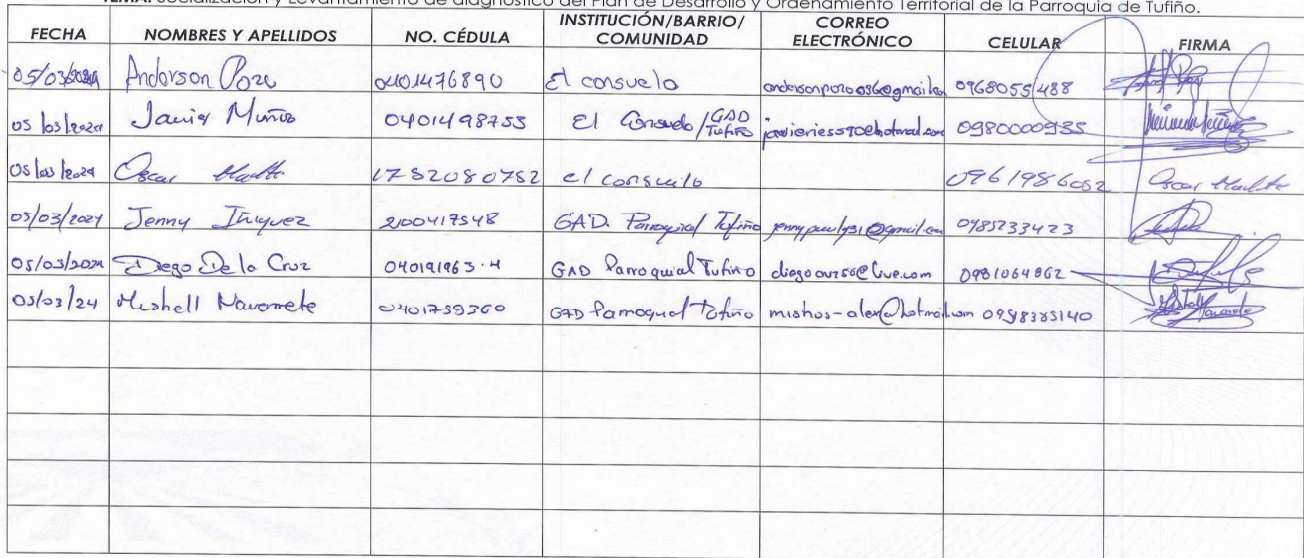 TEMA: Socialización y Levantamiento de diagnóstico del Plan de Desarrollo y Ordenamiento Territorial de la Parroquia de Tufiño.
FECHA NOMBRES Y APELLIDOS NO. CÉDULA INSTITUCIÓN/BARRIO/ COMUNIDAD CORREO ELECTRÓNICO CELULAR FIRMA
05/03/2024 Anderson Pozo 0401476890 El consuelo andersonpozo036@gmail.com 0968055488
05/03/2024 Javier Muñoz 0401498753 El Consuelo / GAD Tufiño 0980000935
05/03/2024 Oscar 1752080752 el consuelo 0961986052 Oscar
05/03/2024 Jenny Iñiguez 2100417548 GAD. Parroquial Tufiño 0985233423
05/03/2024 Diego De la Cruz 040191963-4 GAD Parroquial Tufiño 0981064862
05/03/24 Mishell Navarrete 0401759360 GAD Parroquial Tufiño mishos-alex@hotmail.com 0998383140